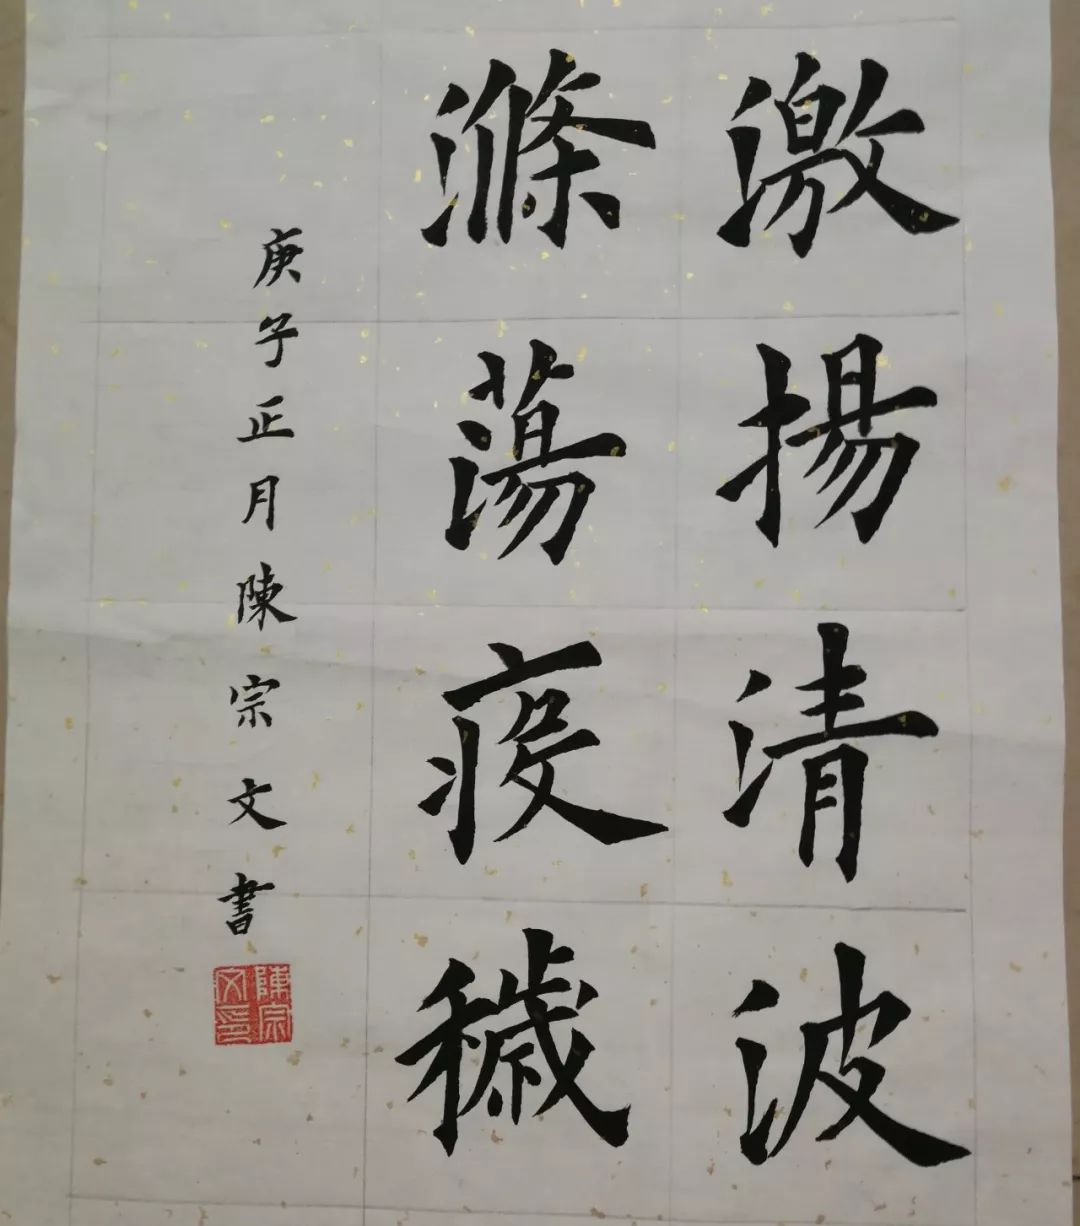 激揚清波
滌蕩疫穢
庚子正月陳宗文書
陳宗文印